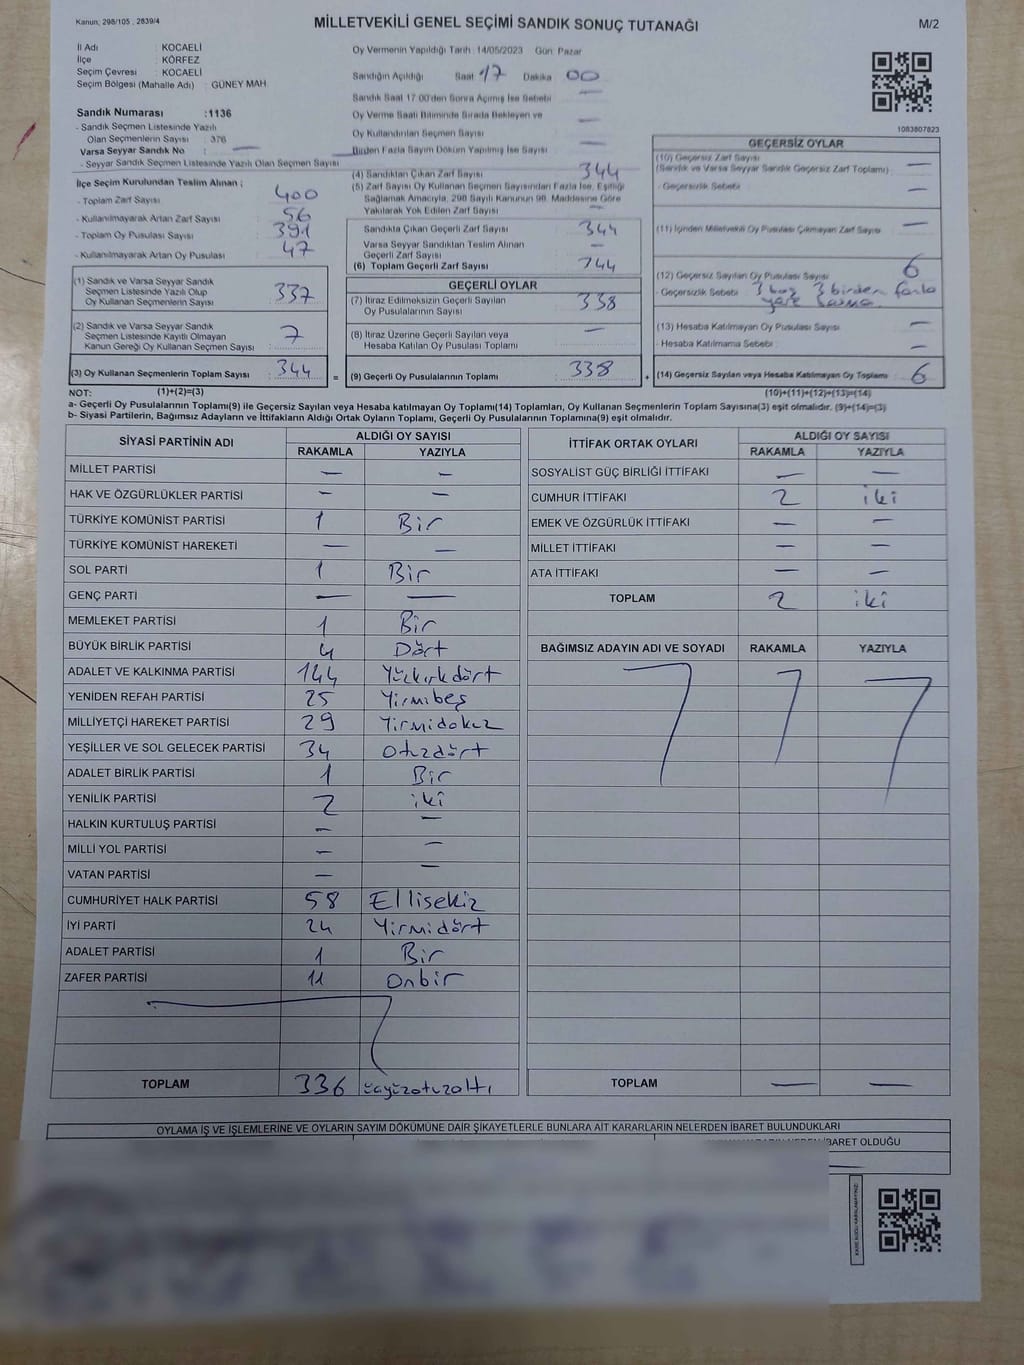 Kanun; 298/105 , 2839/4
MİLLETVEKİLİ GENEL SEÇİMİ SANDIK SONUÇ TUTANAĞI
M/2
İl Adı : KOCAELİ
İlçe : KÖRFEZ
Seçim Çevresi : KOCAELİ
Seçim Bölgesi (Mahalle Adı) : GÜNEY MAH
Sandık Numarası :1136
- Sandık Seçmen Listesinde Yazılı
Olan Seçmenlerin Sayısı : 376
Varsa Seyyar Sandık No : —
- Seyyar Sandık Seçmen Listesinde Yazılı Olan Seçmen Sayısı
Oy Vermenin Yapıldığı Tarih : 14/05/2023 Gün: Pazar
Sandığın Açıldığı Saat 17 Dakika 00
Sandık Saat 17:00'den Sonra Açılmış İse Sebebi —
Oy Verme Saati Bitiminde Sırada Bekleyen ve
Oy Kullandırılan Seçmen Sayısı —
Birden Fazla Sayım Döküm Yapılmış İse Sayısı —
1083807823
İlçe Seçim Kurulundan Teslim Alınan ;
- Toplam Zarf Sayısı : 400
- Kullanılmayarak Artan Zarf Sayısı : 56
- Toplam Oy Pusulası Sayısı : 391
- Kullanılmayarak Artan Oy Pusulası : 47
(1) Sandık ve Varsa Seyyar Sandık
Seçmen Listesinde Yazılı Olup
Oy Kullanan Seçmenlerin Sayısı : 337
(2) Sandık ve Varsa Seyyar Sandık
Seçmen Listesinde Kayıtlı Olmayan
Kanun Gereği Oy Kullanan Seçmen Sayısı : 7
(3) Oy Kullanan Seçmenlerin Toplam Sayısı : 344
(4) Sandıktan Çıkan Zarf Sayısı : 344
(5) Zarf Sayısı Oy Kullanan Seçmen Sayısından Fazla İse, Eşitliği
Sağlamak Amacıyla, 298 Sayılı Kanunun 98. Maddesine Göre
Yakılarak Yok Edilen Zarf Sayısı —
Sandıkta Çıkan Geçerli Zarf Sayısı : 344
Varsa Seyyar Sandıktan Teslim Alınan
Geçerli Zarf Sayısı : —
(6) Toplam Geçerli Zarf Sayısı : 344
GEÇERLİ OYLAR
(7) İtiraz Edilmeksizin Geçerli Sayılan
Oy Pusulalarının Sayısı : 338
(8) İtiraz Üzerine Geçerli Sayılan veya
Hesaba Katılan Oy Pusulası Toplamı : —
= (9) Geçerli Oy Pusulalarının Toplamı : 338
GEÇERSİZ OYLAR
(10) Geçersiz Zarf Sayısı
(Sandık ve Varsa Seyyar Sandık Geçersiz Zarf Toplamı) : —
- Geçersizlik Sebebi : —
(11) İçinden Milletvekili Oy Pusulası Çıkmayan Zarf Sayısı —
(12) Geçersiz Sayılan Oy Pusulası Sayısı : 6
- Geçersizlik Sebebi : 3 boş 3 birden fazla
yere basma
(13) Hesaba Katılmayan Oy Pusulası Sayısı : —
- Hesaba Katılmama Sebebi : —
+ (14) Geçersiz Sayılan veya Hesaba Katılmayan Oy Toplamı : 6
NOT: (1)+(2)=(3) (10)+(11)+(12)+(13)=(14)
a- Geçerli Oy Pusulalarının Toplamı(9) ile Geçersiz Sayılan veya Hesaba katılmayan Oy Toplamı(14) Toplamları, Oy Kullanan Seçmenlerin Toplam Sayısına(3) eşit olmalıdır. (9)+(14)=(3)
b- Siyasi Partilerin, Bağımsız Adayların ve İttifakların Aldığı Ortak Oyların Toplamı, Geçerli Oy Pusulalarının Toplamına(9) eşit olmalıdır.
SİYASİ PARTİNİN ADI ALDIĞI OY SAYISI
RAKAMLA YAZIYLA
MİLLET PARTİSİ — —
HAK VE ÖZGÜRLÜKLER PARTİSİ — —
TÜRKİYE KOMÜNİST PARTİSİ 1 Bir
TÜRKİYE KOMÜNİST HAREKETİ — —
SOL PARTİ 1 Bir
GENÇ PARTİ — —
MEMLEKET PARTİSİ 1 Bir
BÜYÜK BİRLİK PARTİSİ 4 Dört
ADALET VE KALKINMA PARTİSİ 144 Yüzkırkdört
YENİDEN REFAH PARTİSİ 25 Yirmibeş
MİLLİYETÇİ HAREKET PARTİSİ 29 Yirmidokuz
YEŞİLLER VE SOL GELECEK PARTİSİ 34 Otuzdört
ADALET BİRLİK PARTİSİ 1 Bir
YENİLİK PARTİSİ 2 iki
HALKIN KURTULUŞ PARTİSİ — —
MİLLİ YOL PARTİSİ — —
VATAN PARTİSİ — —
CUMHURİYET HALK PARTİSİ 58 Ellisekiz
İYİ PARTİ 24 Yirmidört
ADALET PARTİSİ 1 Bir
ZAFER PARTİSİ 11 Onbir
TOPLAM 336 üçyüzotuzaltı
İTTİFAK ORTAK OYLARI ALDIĞI OY SAYISI
RAKAMLA YAZIYLA
SOSYALİST GÜÇ BİRLİĞİ İTTİFAKI — —
CUMHUR İTTİFAKI 2 iki
EMEK VE ÖZGÜRLÜK İTTİFAKI — —
MİLLET İTTİFAKI — —
ATA İTTİFAKI — —
TOPLAM 2 iki
BAĞIMSIZ ADAYIN ADI VE SOYADI RAKAMLA YAZIYLA
TOPLAM — —
OYLAMA İŞ VE İŞLEMLERİNE VE OYLARIN SAYIM DÖKÜMÜNE DAİR ŞİKAYETLERLE BUNLARA AİT KARARLARIN NELERDEN İBARET BULUNDUKLARI
İBARET OLDUĞU